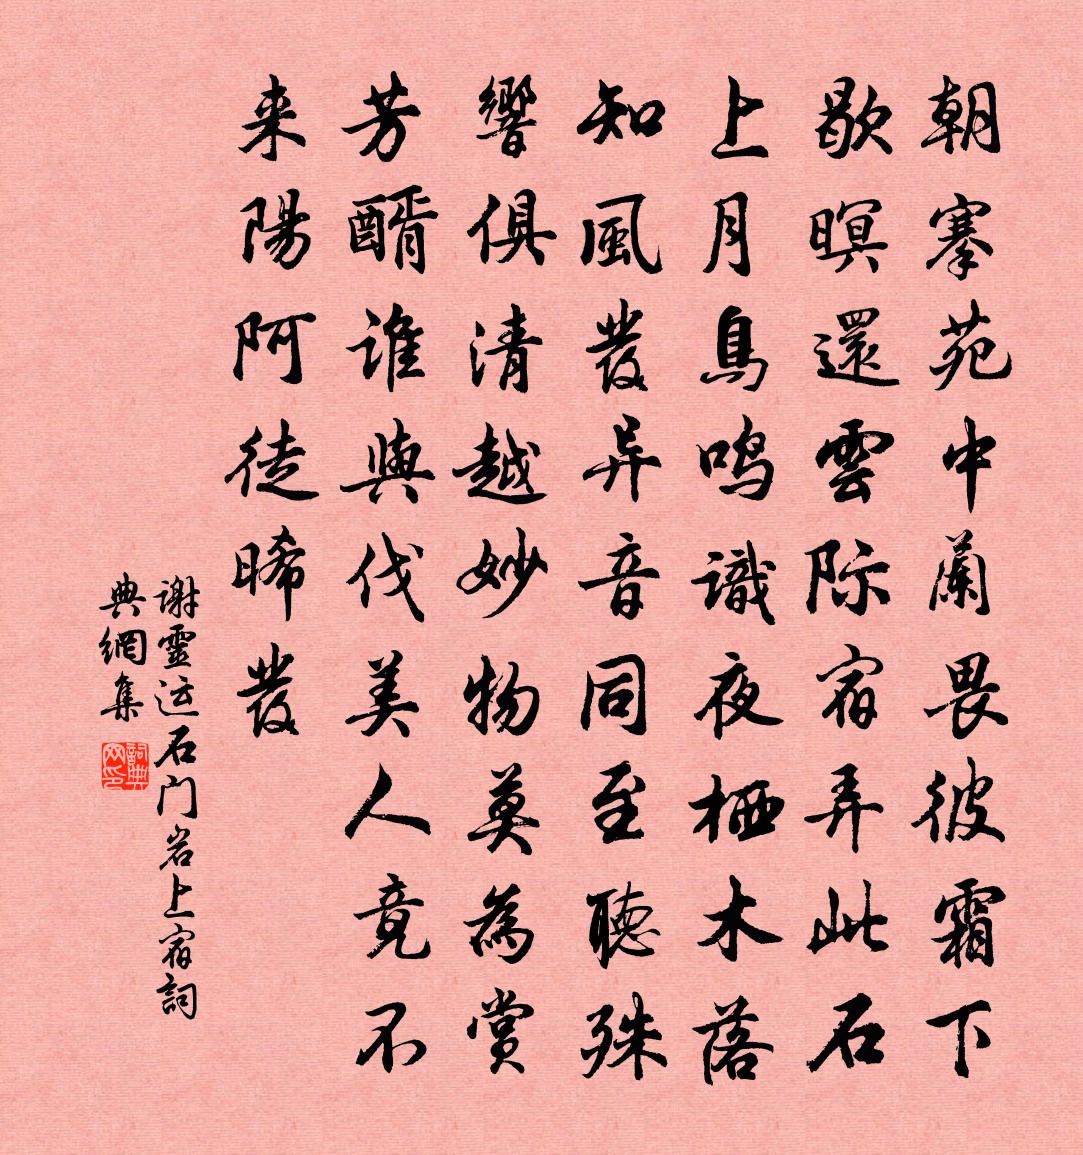 朝搴苑中蘭畏彼霜下
歇暝還雲际宿弄此石
上月鳥鸣識夜栖木落
知風發异音同至聽殊
響俱清越妙物莫為賞
芳醑誰與伐美人竟不
来陽阿徒晞發
謝靈运石门岩上宿詞
典網集
詞典
网印